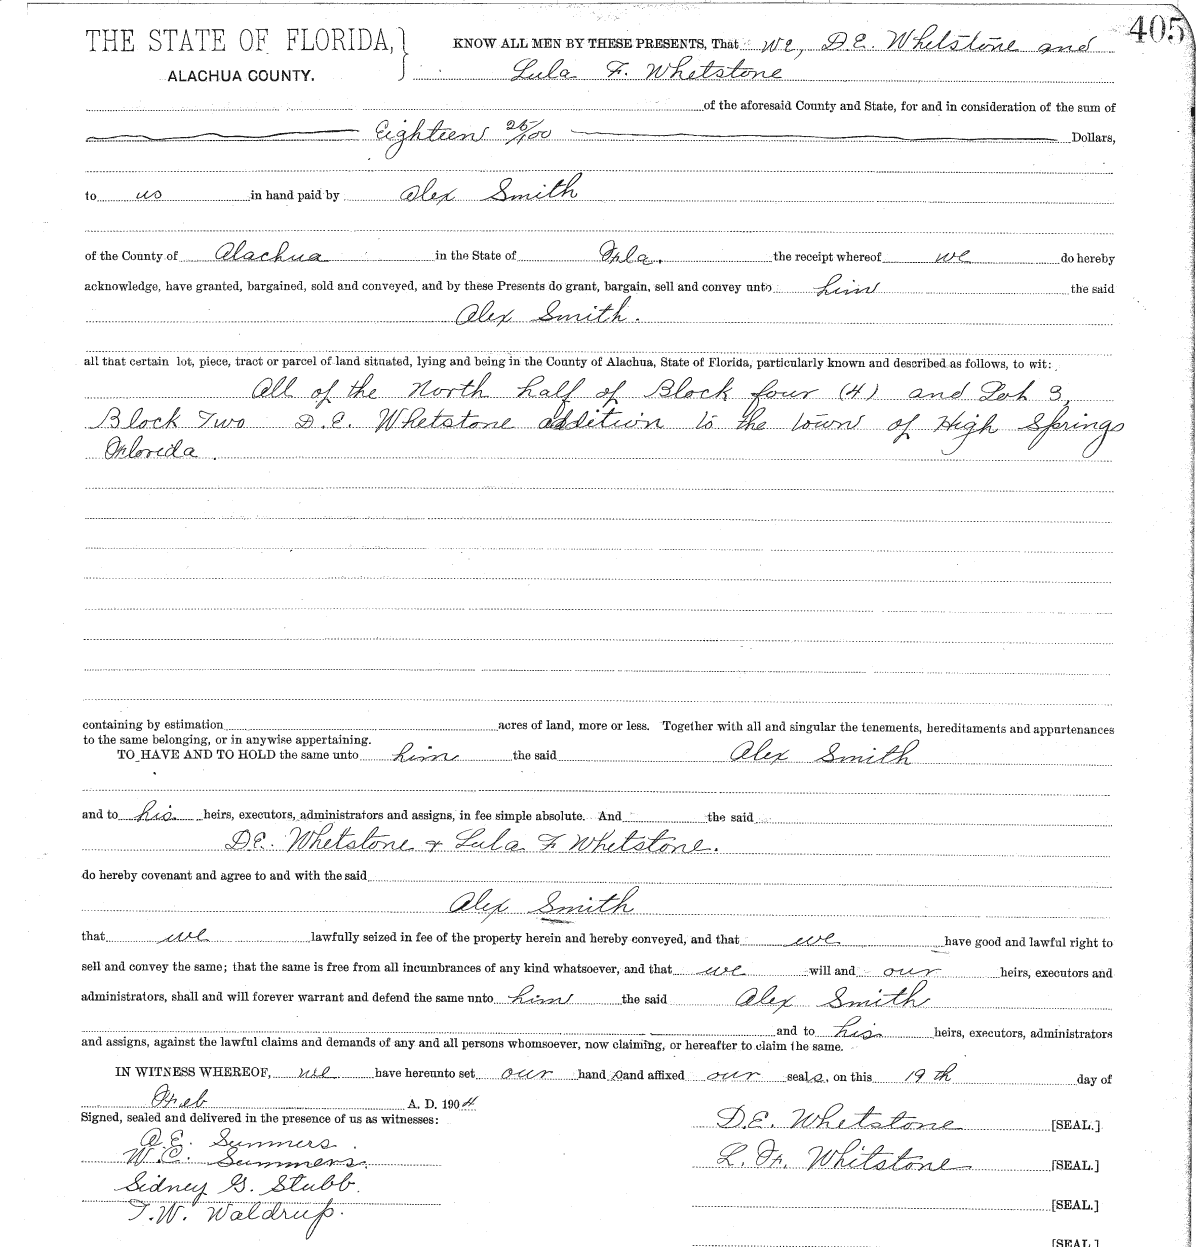 405
THE STATE OF FLORIDA,
ALACHUA COUNTY.
KNOW ALL MEN BY THESE PRESENTS, That we, D.E. Whetstone and
Lula F. Whetstone
of the aforesaid County and State, for and in consideration of the sum of
Eighteen 25/100 Dollars,
to us in hand paid by Alex Smith
of the County of Alachua in the State of Fla. the receipt whereof we do hereby
acknowledge, have granted, bargained, sold and conveyed, and by these Presents do grant, bargain, sell and convey unto him the said
Alex Smith.
all that certain lot, piece, tract or parcel of land situated, lying and being in the County of Alachua, State of Florida, particularly known and described as follows, to wit:
All of the North half of Block four (4) and Lot 3,
Block Two D.E. Whetstone addition to the town of High Springs
Florida.
containing by estimation acres of land, more or less. Together with all and singular the tenements, hereditaments and appurtenances
to the same belonging, or in anywise appertaining.
TO HAVE AND TO HOLD the same unto him the said Alex Smith
and to his heirs, executors, administrators and assigns, in fee simple absolute. And the said
D.E. Whetstone & Lula F Whetstone.
do hereby covenant and agree to and with the said
Alex Smith
that we lawfully seized in fee of the property herein and hereby conveyed, and that we have good and lawful right to
sell and convey the same; that the same is free from all incumbrances of any kind whatsoever, and that we will and our heirs, executors and
administrators, shall and will forever warrant and defend the same unto him the said Alex Smith
and to his heirs, executors, administrators
and assigns, against the lawful claims and demands of any and all persons whomsoever, now claiming, or hereafter to claim the same.
IN WITNESS WHEREOF, we have hereunto set our hands and affixed our seals, on this 19th day of
Feb A. D. 1904
Signed, sealed and delivered in the presence of us as witnesses:
D.E. Whetstone [SEAL.]
A.E. Summers.
W.C. Summers.
L. F. Whitstone [SEAL.]
Sidney G. Stubb.
T.W. Waldrup.
[SEAL.]
[SEAL.]